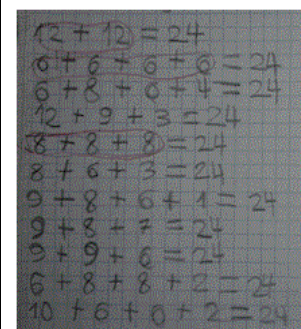 12 + 12 = 24
6 + 6 + 6 + 6 = 24
6 + 8 + 6 + 4 = 24
12 + 9 + 3 = 24
8 + 8 + 8 = 24
8 + 6 + 3 = 24
9 + 8 + 6 + 1 = 24
9 + 8 + 7 = 24
9 + 9 + 6 = 24
6 + 8 + 8 + 2 = 24
10 + 6 + 6 + 2 = 24